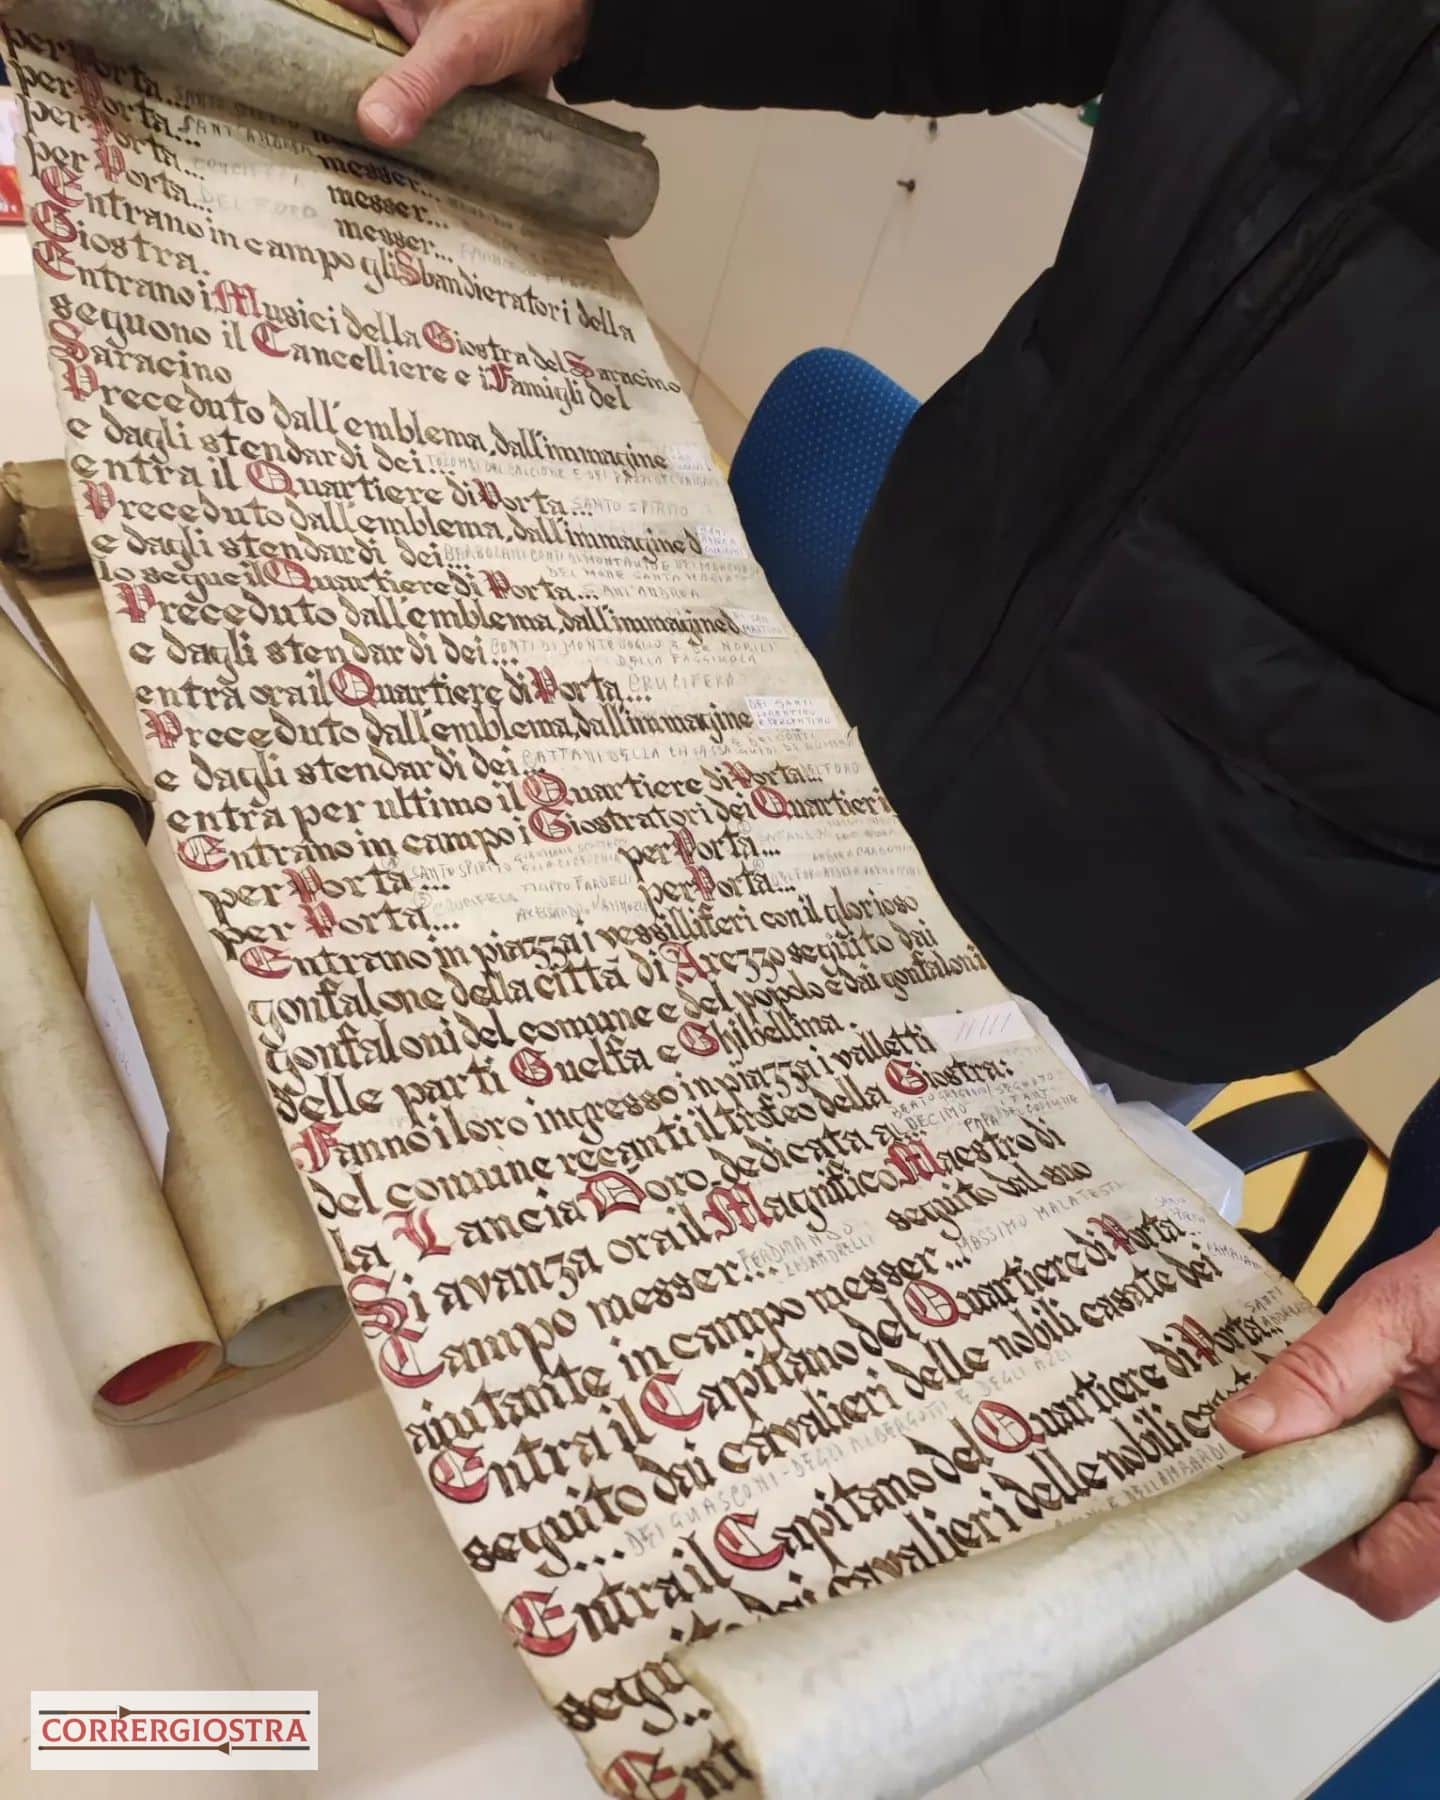 per Porta...
per Porta... SANT'ANDREA messer...
per Porta... CRUCIFERA messer...
per Porta... DEL FORO messer...
Entrano in campo gli Sbandieratori della
Giostra.
Entrano i Musici della Giostra del Saracino
seguono il Cancelliere e i Famigli del
Saracino
Preceduto dall'emblema, dall'immagine
e dagli stendardi dei... TOLOMEI DEL CALCIONE E DEI
entra il Quartiere di Porta... SANTO SPIRITO
Preceduto dall'emblema, dall'immagine d
e dagli stendardi dei... BARBOLANI CONTI DI MONTAUTO E DEI MARCHESI
DEL MONTE SANTA MARIA
lo segue il Quartiere di Porta... SANT'ANDREA
Preceduto dall'emblema, dall'immagine d DI SAN MARTINO
e dagli stendardi dei... CONTI DI MONTEDOGLIO E NOBILI
DELLA FAGGIUOLA
entra ora il Quartiere di Porta... CRUCIFERA
Preceduto dall'emblema, dall'immagine DEI SANTI LORENTINO E PERGENTINO
e dagli stendardi dei... CATTANI DELLA CHIASSA E DEI CONTI GUIDI DI
entra per ultimo il Quartiere di Porta... DEL FORO
Entrano in campo i Giostratori dei Quartieri
per Porta... SANTO SPIRITO ELIA CICERCHIA per Porta...
per Porta... CRUCIFERA FILIPPO FARDELLI ALESSANDRO VANNOZZI per Porta... DEL FORO
Entrano in piazza i vessilliferi con il glorioso
gonfalone della città di Arezzo seguito dai
gonfaloni del comune e del popolo e dai gonfaloni
delle parti Guelfa e Ghibellina.
Fanno il loro ingresso in piazza i valletti
del comune recanti il trofeo della Giostra:
la Lancia D'oro, dedicata a... BEATO GREGORIO DECIMO PAPA
Si avanza ora il Magnifico Maestro di
Campo messer... FERDINANDO LISANDRELLI seguito dal suo
aiutante in campo messer... MASSIMO MALATESTI
Entra il Capitano del Quartiere di Porta...
seguito dai cavalieri delle nobili casate dei
... DEI GUASCONI - DEGLI ALBERGOTTI E DEGLI AZZI
Entra il Capitano del Quartiere di Porta...
seguito dai cavalieri delle nobili
CORRERGIOSTRA